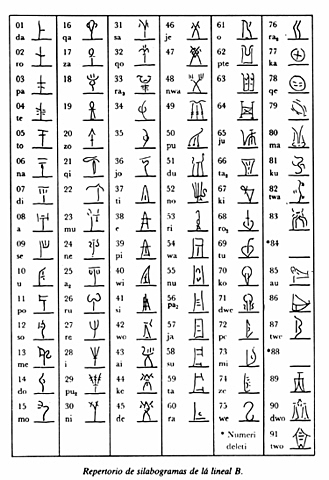 01 16 31 46 61 76
da qa sa je o ra₂
02 17 32 47 62 77
ro za qo pte ka
03 18 33 48 63 78
pa ra₃ nwa qe
04 19 34 49 64 79
te
05 20 35 50 65 80
to zo pu ju ma
06 21 36 51 66 81
na qi jo du ta₂ ku
07 22 37 52 67 82
di ti no ki twa
08 23 38 53 68 83
a mu e ri ro₂
09 24 39 54 69 *84
se ne pi wa tu
10 25 40 55 70 85
u a₂ wi nu ko au
11 26 41 56 71 86
po ru si pa₂ dwe
12 27 42 57 72 87
so re wo ja pe twe
13 28 43 58 73 *88
me i ai su mi
14 29 44 59 74 89
do pu₂ ke ta ze
15 30 45 60 75 90
mo ni de ra we dwo
* Numeri 91
deleti two
Repertorio de silabogramas de la lineal B.